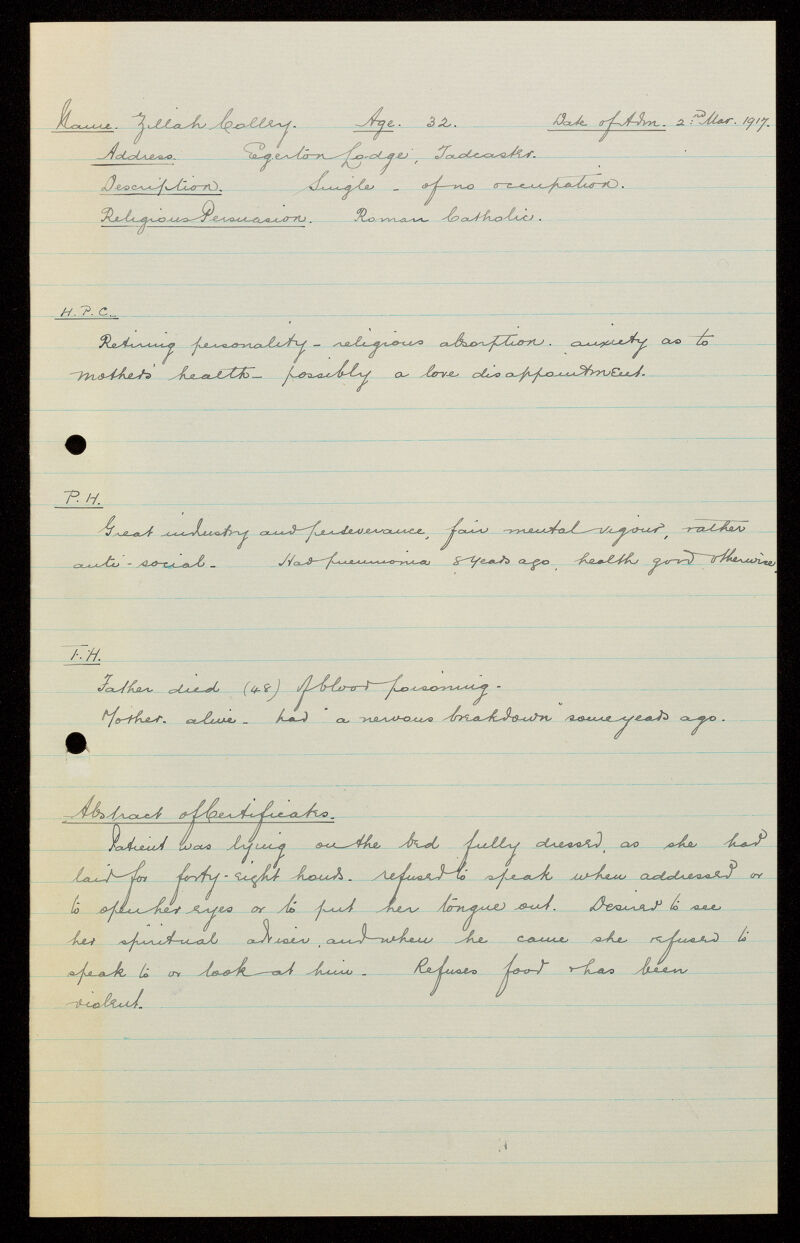 Name. Zillah Colley. Age. 32. Date of Adm. 2nd Mar. 1917.
Address. Egerton Lodge, Tadcaster.
Description. Single - of no occupation.
Religious Persuasion. Roman Catholic.
H.P.C.
Retiring personality - religious absorption. anxiety as to
mothers' health - possibly a love disappointment.
P.H.
Great industry and perseverance, fair mental vigour, rather
anti-social - Had pneumonia 8 years ago, health good otherwise.
F.H.
Father died (48) of blood poisoning.
Mother. alive - had "a nervous breakdown" some years ago.
Abstract of Certificates.
Patient was lying on the bed fully dressed, as she had
laid for forty-eight hours. refused to speak when addressed or
to open her eyes or to put her tongue out. Desired to see
her spiritual adviser, and when he came she refused to
speak to or look at him - Refuses food & has been
violent.